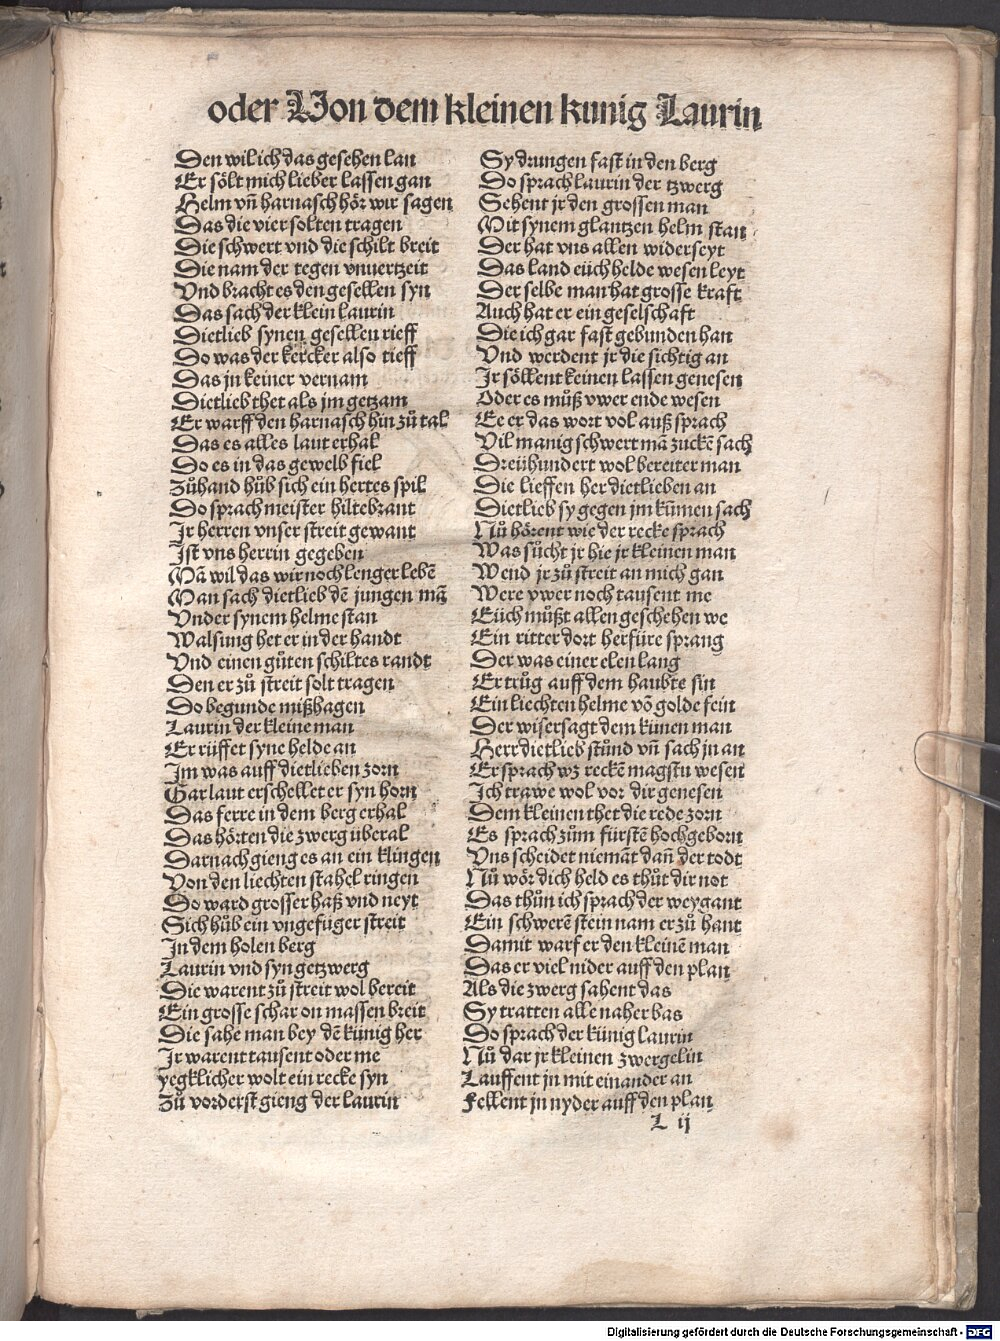 oder Von dem kleinen kunig Laurin
Den wil ich das gesehen lan
Er sölt mich lieber lassen gan
Helm vñ harnasch hör wir sagen
Das die vier solten tragen
Die schwert vnd die schilt breit
Die nam der tegen vnuertzeit
Vnd bracht es den gesellen syn
Das sach der klein laurin
Dietlieb synen gesellen rieff
Do was der kercker also tieff
Das jn keiner vernam
Dietlieb thet als jm getzam
Er warff den harnasch hin zů tal
Das es alles laut erhal
Do es in das gewelb fiel
Zůhand hůb sich ein hertes spil
Do sprach meister hiltebrant
Jr herren vnser streit gewant
Jst vns herrin gegeben
Mã wil das wir noch lenger lebẽ
Man sach dietlieb dẽ jungen mã
Vnder synem helme stan
Walsung het er in der handt
Vnd einen gůten schiltes randt
Den er zů streit solt tragen
Do begunde mißhagen
Laurin der kleine man
Er rüffet syne helde an
Jm was auff dietlieben zorn
Gar laut erschellet er syn horn
Das ferre in dem berg erhal
Das hörten die zwerg überal
Darnach gieng es an ein klingen
Von den liechten stahel ringen
Do ward grosser haß vnd neyt
Sich hůb ein vngefüger streit
Jn dem holen berg
Laurin vnd syn getzwerg
Die warent zů streit wol bereit
Ein grosse schar on massen breit
Die sahe man bey dẽ künig her
Jr warent tausent oder me
yegklicher wolt ein recke syn
Zů vorderst gieng der laurin
Sy drungen fast in den berg
Do sprach laurin der tzwerg
Sehent jr den grossen man
Mit synem glantzen helm stan
Der hat vns allen widerseyt
Das land eüch helde wesen leyt
Der selbe man hat grosse kraft
Auch hat er ein geselschaft
Die ich gar fast gebunden han
Vnd werdent jr die sichtig an
Jr söllent keinen lassen genesen
Oder es můß vwer ende wesen
Ee er das wort vol auß sprach
Vil manig schwert mã zuckẽ sach
Dreühundert wol bereiter man
Die lieffen her dietlieben an
Dietlieb sy gegen jm kümen sach
Nů hörent wie der recke sprach
Was sůcht jr hie jr kleinen man
Wend jr zů streit an mich gan
Were vwer noch tausent me
Eüch můßt allen geschehen we
Ein ritter dort herfüre sprang
Der was einer elen lang
Er trůg auff dem haubte sin
Ein liechten helme võ golde fein
Der wisersagt dem künen man
Herr dietlieb stůnd vñ sach jn an
Er sprach wz reckẽ magstu wesen
Jch trawe wol vor dir genesen
Dem kleinen thet die rede zorn
Es sprach zům fürstẽ hochgeborn
Vns scheidet niemãt dañ der todt
Nů wör dich held es thůt dir not
Das thůn ich sprach der weygant
Ein schwerẽ stein nam er zů hant
Damit warf er den kleinẽ man
Das er viel nider auff den plan
Als die zwerg sahent das
Sy tratten alle naher bas
Do sprach der künig laurin
Nů dar jr kleinen zwergelin
Lauffent jn mit einander an
Fellent jn nyder auff den plan
L ij
Digitalisierung gefördert durch die Deutsche Forschungsgemeinschaft - DFG